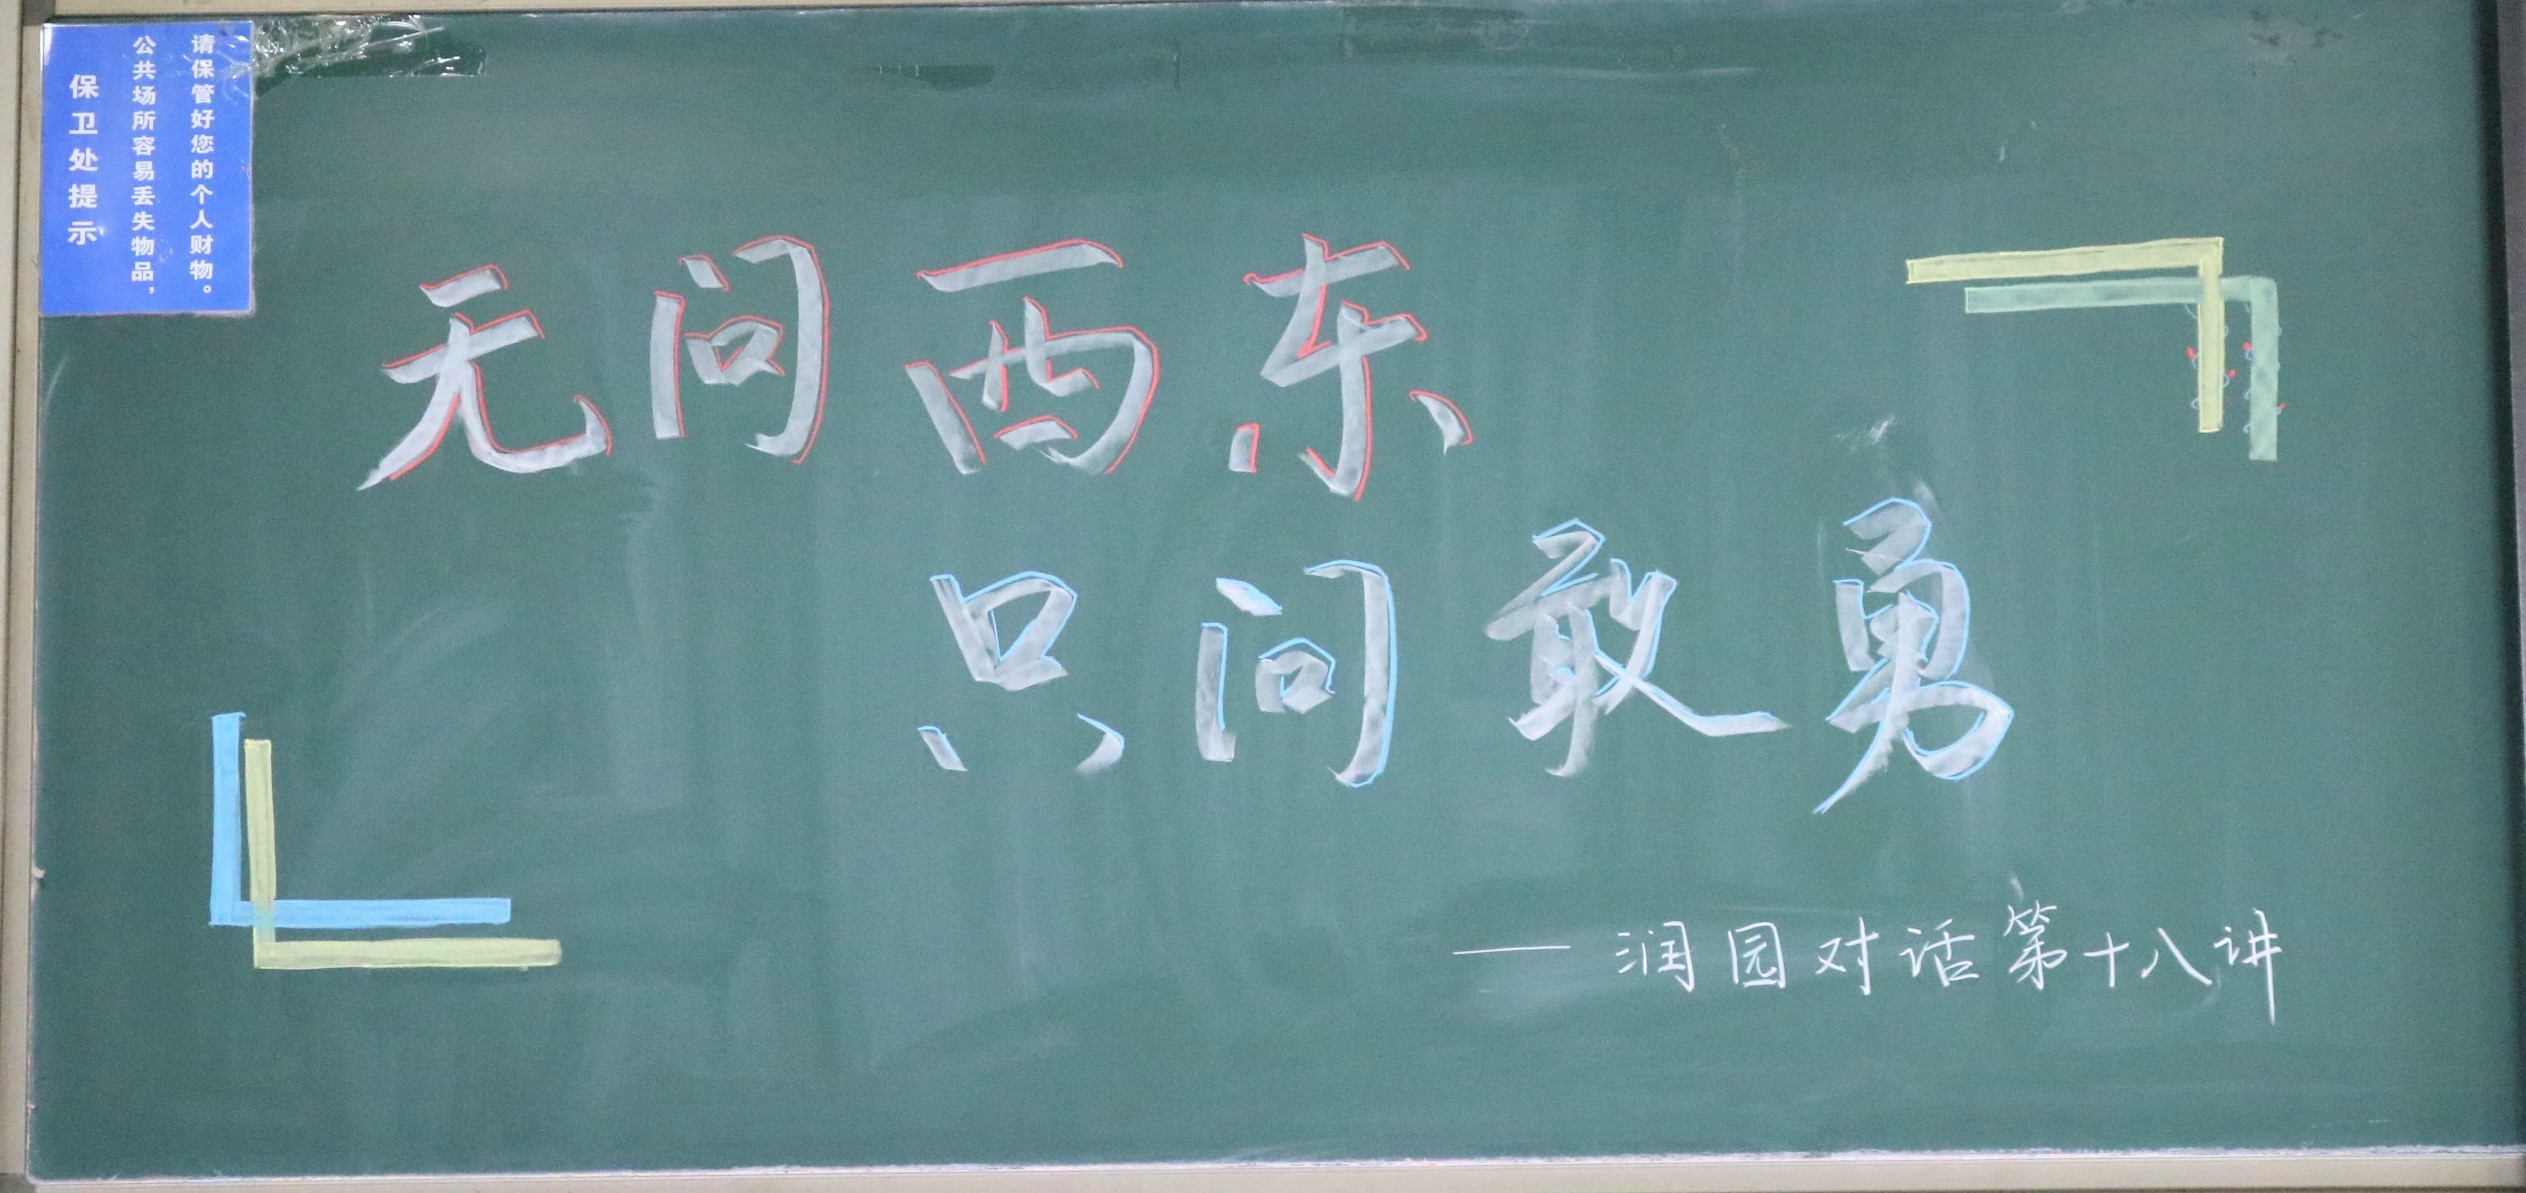 请保管好您的个人财物。
公共场所容易丢失物品，
保卫处提示
无问西东
只问敢勇
——润园对话第十八讲